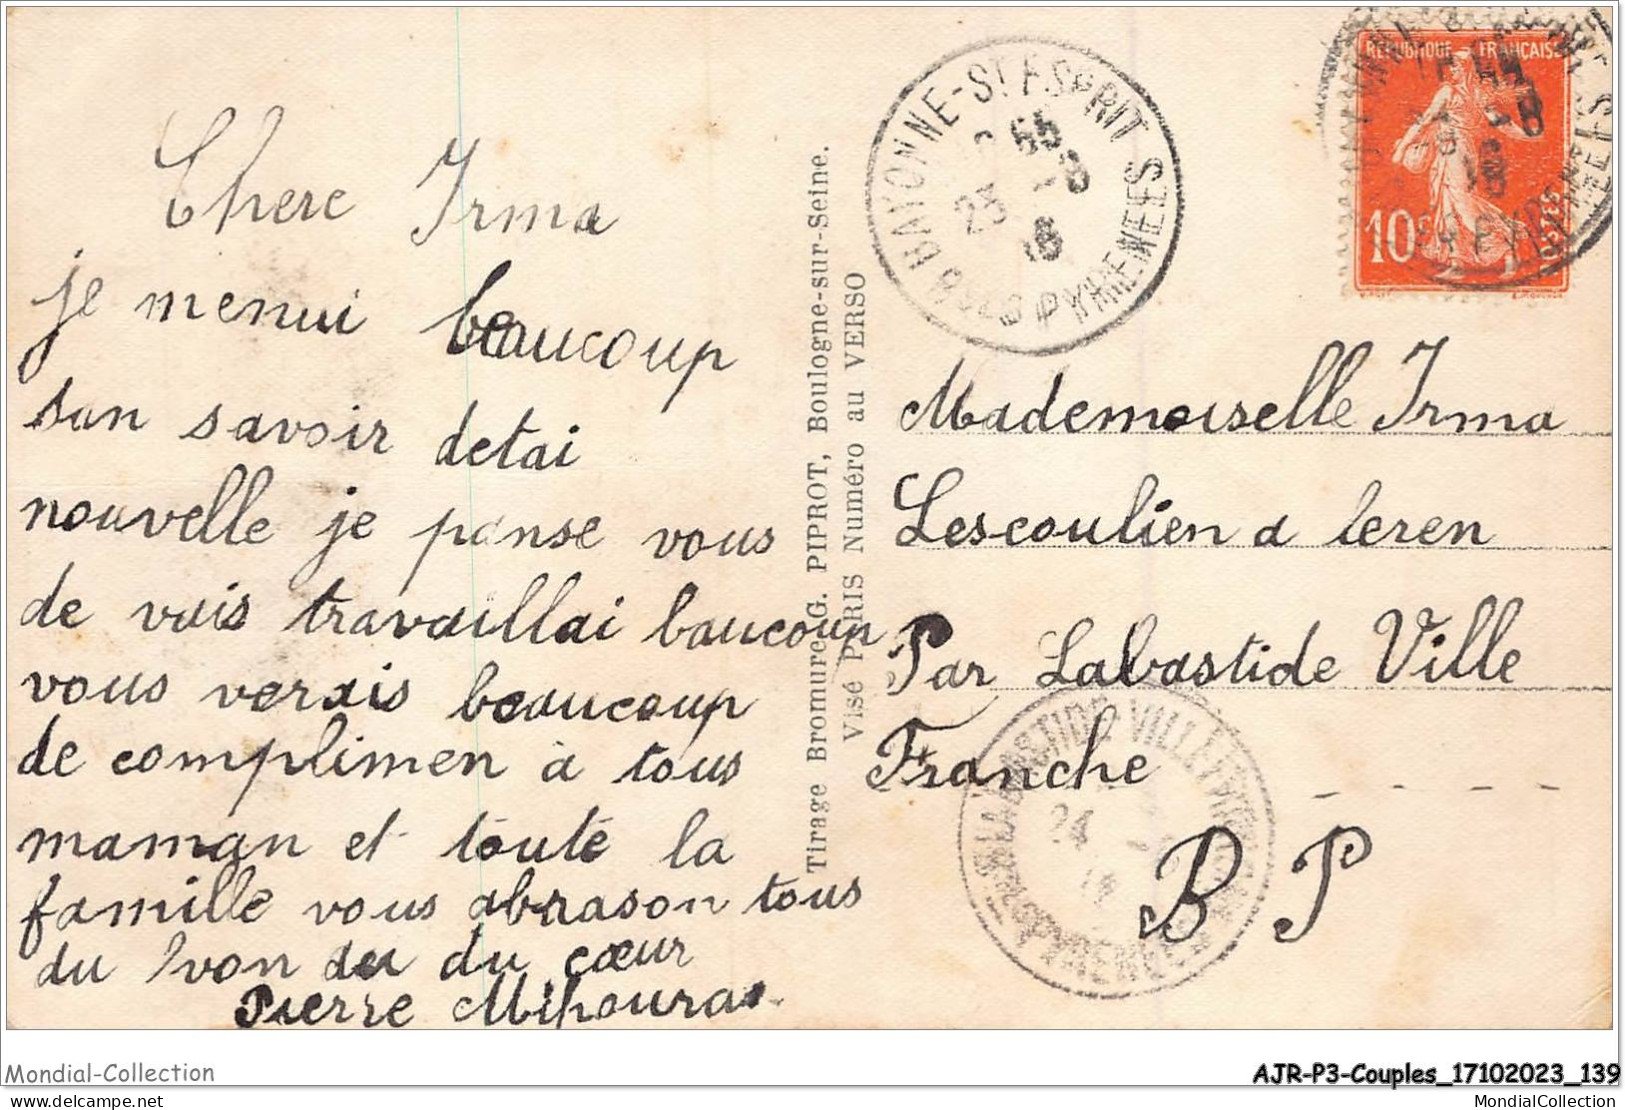 Chere Irma
je menui beaucoup
san savoir detai
nouvelle je panse vous
de vais travaillai baucoup
vous verais beaucoup
de complimen a tous
maman et toute la
famille vous abrason tous
du von du cœur
Pierre
Tirage Bromure G. PIPROT, Boulogne-sur-Seine.
Visé PARIS Numéro au VERSO
BAYONNE-ST ESPRIT
55
23 -8
BSES PYRENEES
REPUBLIQUE FRANÇAISE
10c
POSTES
Mademoiselle Irma
Lescoulien a leren
Par Labastide Ville
Franche
B P
LABASTIDE VILLEFRANCHE
24
PYRENEES
Mondial-Collection
AJR-P3-Couples_17102023_139
delcampe.net
MondialCollection